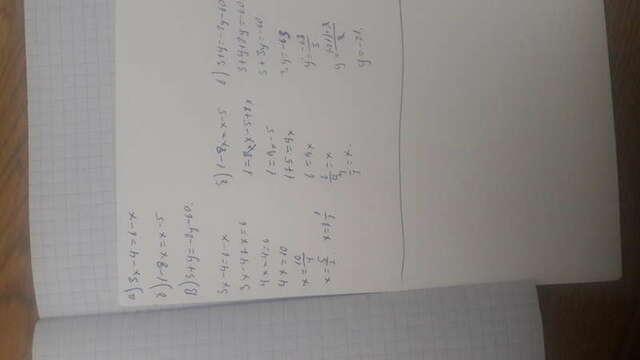 а) 3x-4=6-x
б) 1-8x=x-5
В) 3+y=-2y-60.
3x-4=6-x
3x-4+x=6
4x-4=6
4x=10
x=10/4
x=5/2
б) 1-8x=x-5
1=x-5+8x
1=9x-5
1+5=9x
6=9x
6/9=x
=x.
в) 3+y=-2y-60
3+y+2y=-60
3+3y=-60
3y=-63
y=-63/3
y=-21.